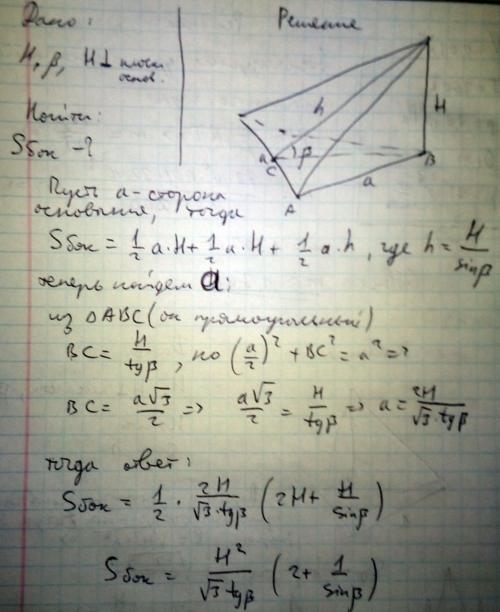 Дано:
H, β, H ⊥ плоск. основ.
Найти:
Sбок -?
Решение
h
H
β
a
C
B
a
A
Пусть a - сторона
основания, тогда
Sбок = 1/2 a·H + 1/2 a·H + 1/2 a·h, где h = H/sinβ
теперь найдем a:
из △ABC (он прямоугольный)
BC = H/tgβ, но (a/2)² + BC² = a² =>
BC = a√3/2 => a√3/2 = H/tgβ => a = 2H/(√3·tgβ)
тогда ответ:
Sбок = 1/2 · 2H/(√3·tgβ) (2H + H/sinβ)
Sбок = H²/(√3·tgβ) (2 + 1/sinβ)